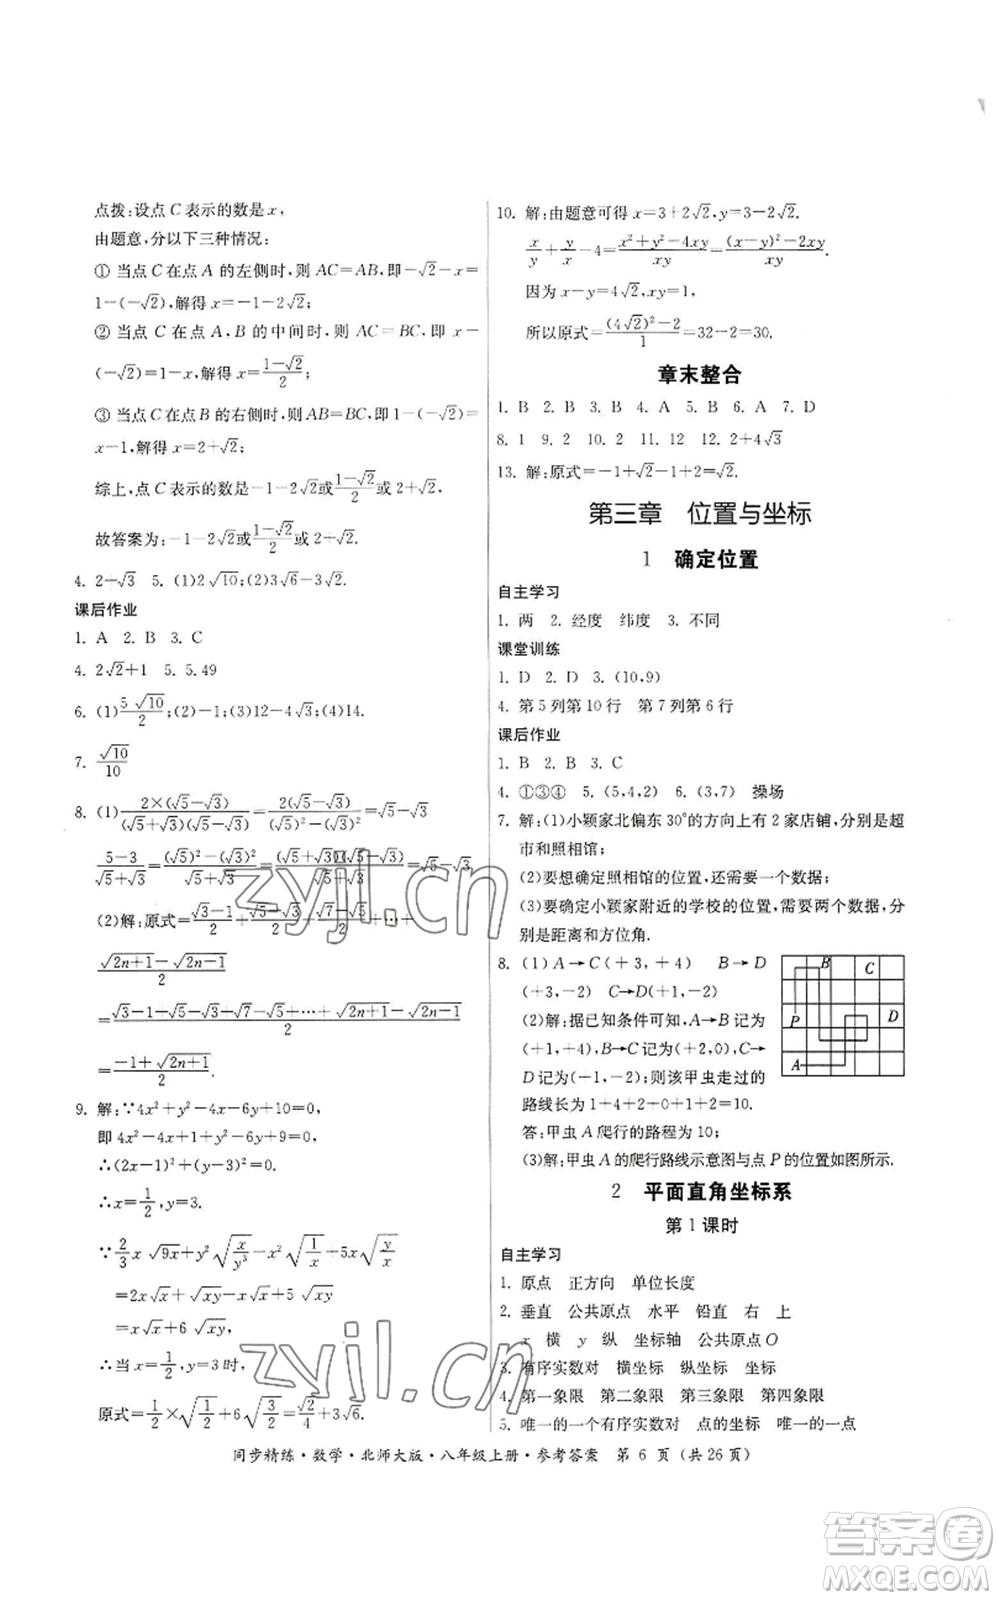 点拨:设点 C 表示的数是 x,
由题意,分以下三种情况:
① 当点 C 在点 A 的左侧时,则 AC=AB,即-√2-x=
1-(-√2),解得 x=-1-2√2;
② 当点 C 在点 A,B 的中间时,则 AC=BC,即 x-
(-√2)=1-x,解得 x=(1-√2)/2;
③ 当点 C 在点 B 的右侧时,则 AB=BC,即 1-(-√2)=
x-1,解得 x=2+√2;
综上,点 C 表示的数是-1-2√2或(1-√2)/2或2+√2.
故答案为:-1-2√2或(1-√2)/2或 2+√2.
4. 2-√3 5. (1)2√10;(2)3√6-3√2.
课后作业
1. A 2. B 3. C
4. 2√2+1 5. 5.49
6. (1)5√10/2;(2)-1;(3)12-4√3;(4)14.
7. √10/10
8. (1)2×(√5-√3)/(√5+√3)(√5-√3)=2(√5-√3)/((√5)²-(√3)²)=√5-√3
(5-3)/(√5+√3)=((√5)²-(√3)²)/(√5+√3)=(√5+√3)(√5-√3)/(√5+√3)=√5-√3
(2)解:原式=(√3-1)/2+(√5-√3)/2+(√7-√5)/2+…+
(√2n+1-√2n-1)/2
=(√3-1+√5-√3+√7-√5+…+√2n+1-√2n-1)/2
=(-1+√2n+1)/2.
9. 解:∵4x²+y²-4x-6y+10=0,
即 4x²-4x+1+y²-6y+9=0,
∴(2x-1)²+(y-3)²=0.
∴x=1/2,y=3.
∵2/3x√9x+y²√(x/y³)-x²√(1/x)+5x√(y/x)
=2x√x+√xy-x√x+5√xy
=x√x+6√xy,
∴当 x=1/2,y=3 时,
原式=1/2×√(1/2)+6√(3/2)=√2/4+3√6.
10. 解:由题意可得 x=3+2√2,y=3-2√2.
x/y+y/x-4=(x²+y²-4xy)/xy=((x-y)²-2xy)/xy.
因为 x-y=4√2,xy=1,
所以原式=((4√2)²-2)/1=32-2=30.
章末整合
1. B 2. B 3. B 4. A 5. B 6. A 7. D
8. 1 9. 2 10. 2 11. 12 12. 2+4√3
13. 解:原式=-1+√2-1+2=√2.
第三章 位置与坐标
1 确定位置
自主学习
1. 两 2. 经度 纬度 3. 不同
课堂训练
1. D 2. D 3. (10,9)
4. 第 5 列第 10 行 第 7 列第 6 行
课后作业
1. B 2. B 3. C
4. ①③④ 5. (5,4,2) 6. (3,7) 操场
7. 解:(1)小颖家北偏东 30°的方向上有 2 家店铺,分别是超
市和照相馆;
(2)要想确定照相馆的位置,还需要一个数据;
(3)要确定小颖家附近的学校的位置,需要两个数据,分
别是距离和方位角.
8. (1) A→C(+3,+4) B→D
(+3,-2) C→D(+1,-2)
(2)解:据已知条件可知,A→B 记为
(+1,+4),B→C 记为(+2,0),C→
D 记为(+1,-2);则该甲虫走过的
路线长为 1+4+2+1+2=10.
答:甲虫 A 爬行的路程为 10;
(3)解:甲虫 A 的爬行路线示意图与点 P 的位置如图所示.
B C
P D
A
2 平面直角坐标系
第 1 课时
自主学习
1. 原点 正方向 单位长度
2. 垂直 公共原点 水平 铅直 右 上
x 横 y 纵 坐标轴 公共原点 O
3. 有序实数对 横坐标 纵坐标 坐标
4. 第一象限 第二象限 第三象限 第四象限
5. 唯一的一个有序实数对 点的坐标 唯一的一点
同步精练·数学·北师大版·八年级上册·参考答案 第 6 页 (共 26 页)
zyjl.cn
zyjl.cn
答案卷
MXQE.COM